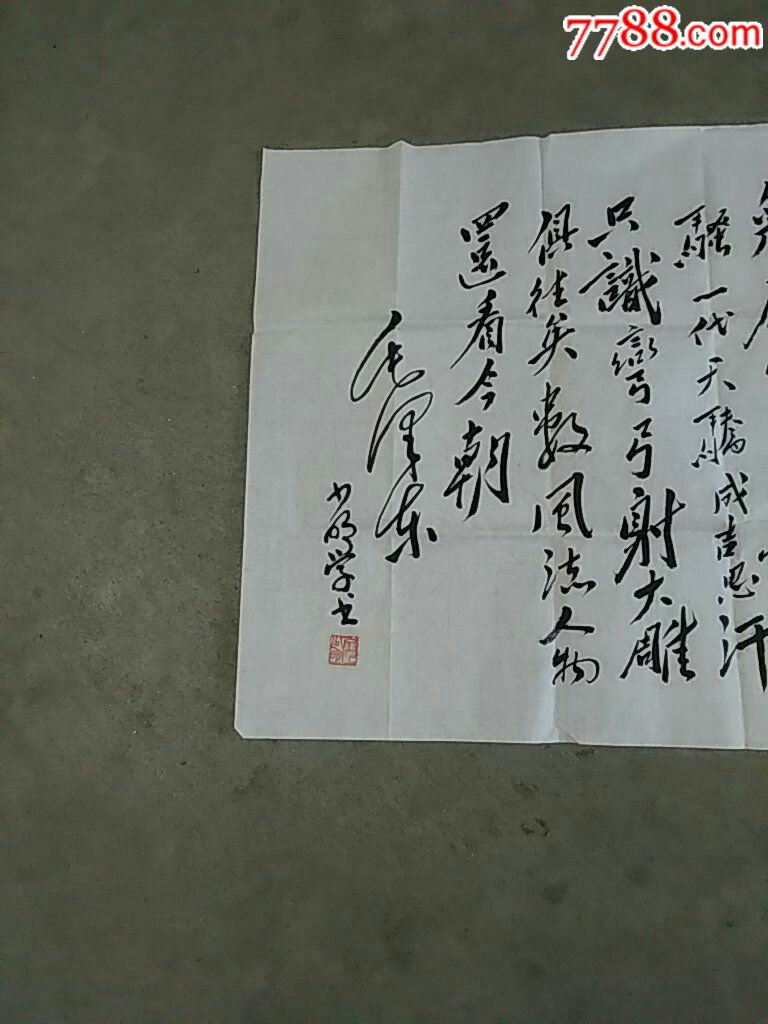 7788.com
騷一代天驕成吉思汗
只識彎弓射大雕
俱往矣數風流人物
還看今朝
毛澤東
少明学书